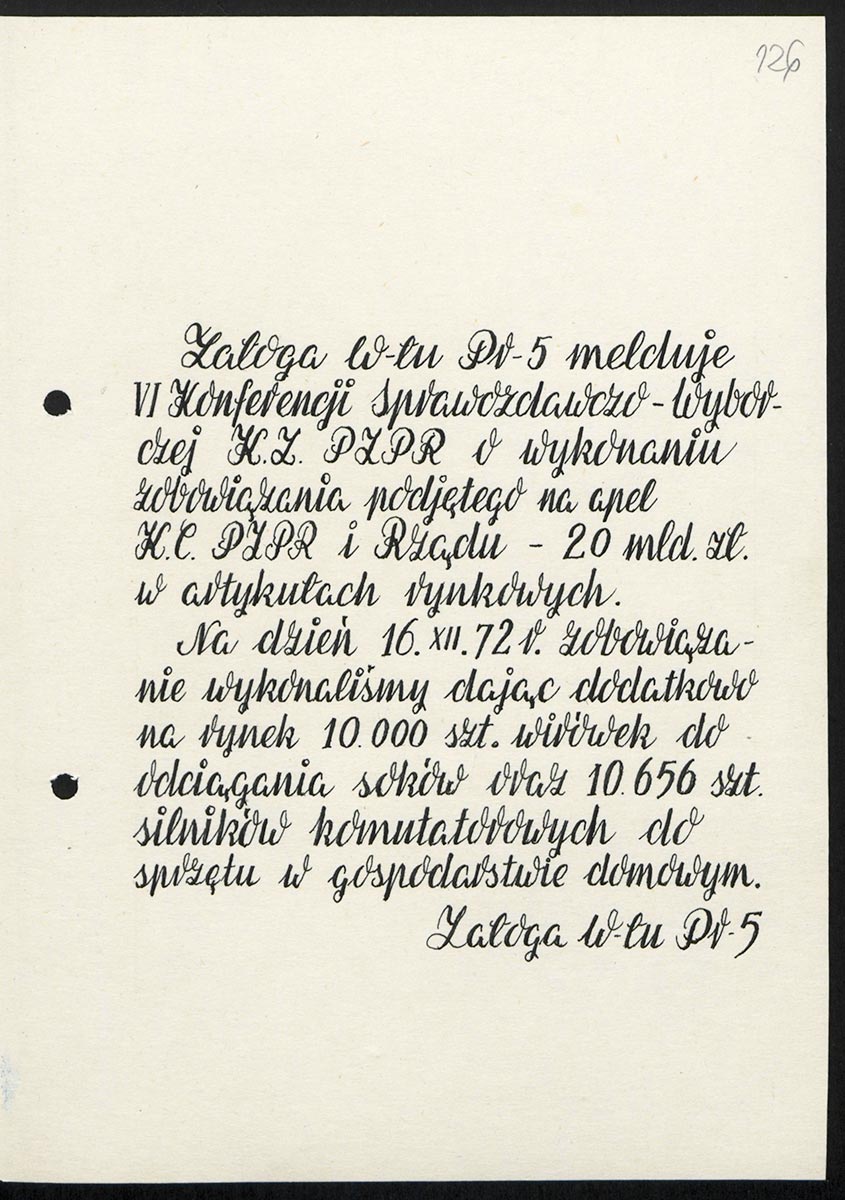 126
Załoga W-łu Pr-5 melduje
VI Konferencji Sprawozdawczo-Wybor-
czej K.Z. PZPR o wykonaniu
zobowiązania podjętego na apel
K.C. PZPR i Rządu - 20 mld. zł.
w artykułach rynkowych.
Na dzień 16.XII.72 r. zobowiąza-
nie wykonaliśmy dając dodatkowo
na rynek 10.000 szt. wirówek do
odciągania soków oraz 10.656 szt.
silników komutatorowych do
sprzętu w gospodarstwie domowym.
Załoga W-łu Pr-5